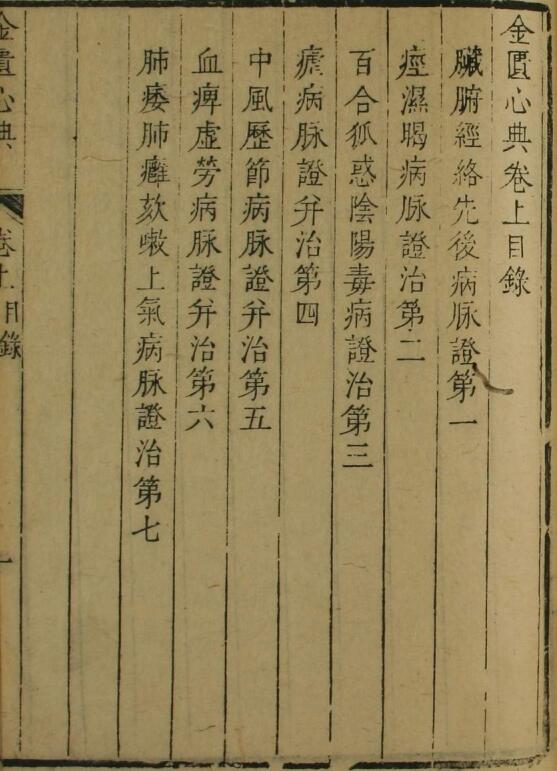 金匱心典卷上目錄
臟腑經絡先後病脉證第一
痙濕暍病脉證治第二
百合狐惑陰陽毒病證治第三
瘧病脉證并治第四
中風歷節病脉證并治第五
血痺虛勞病脉證并治第六
肺痿肺癰欬嗽上氣病脉證治第七
金匱心典 卷上目錄 一